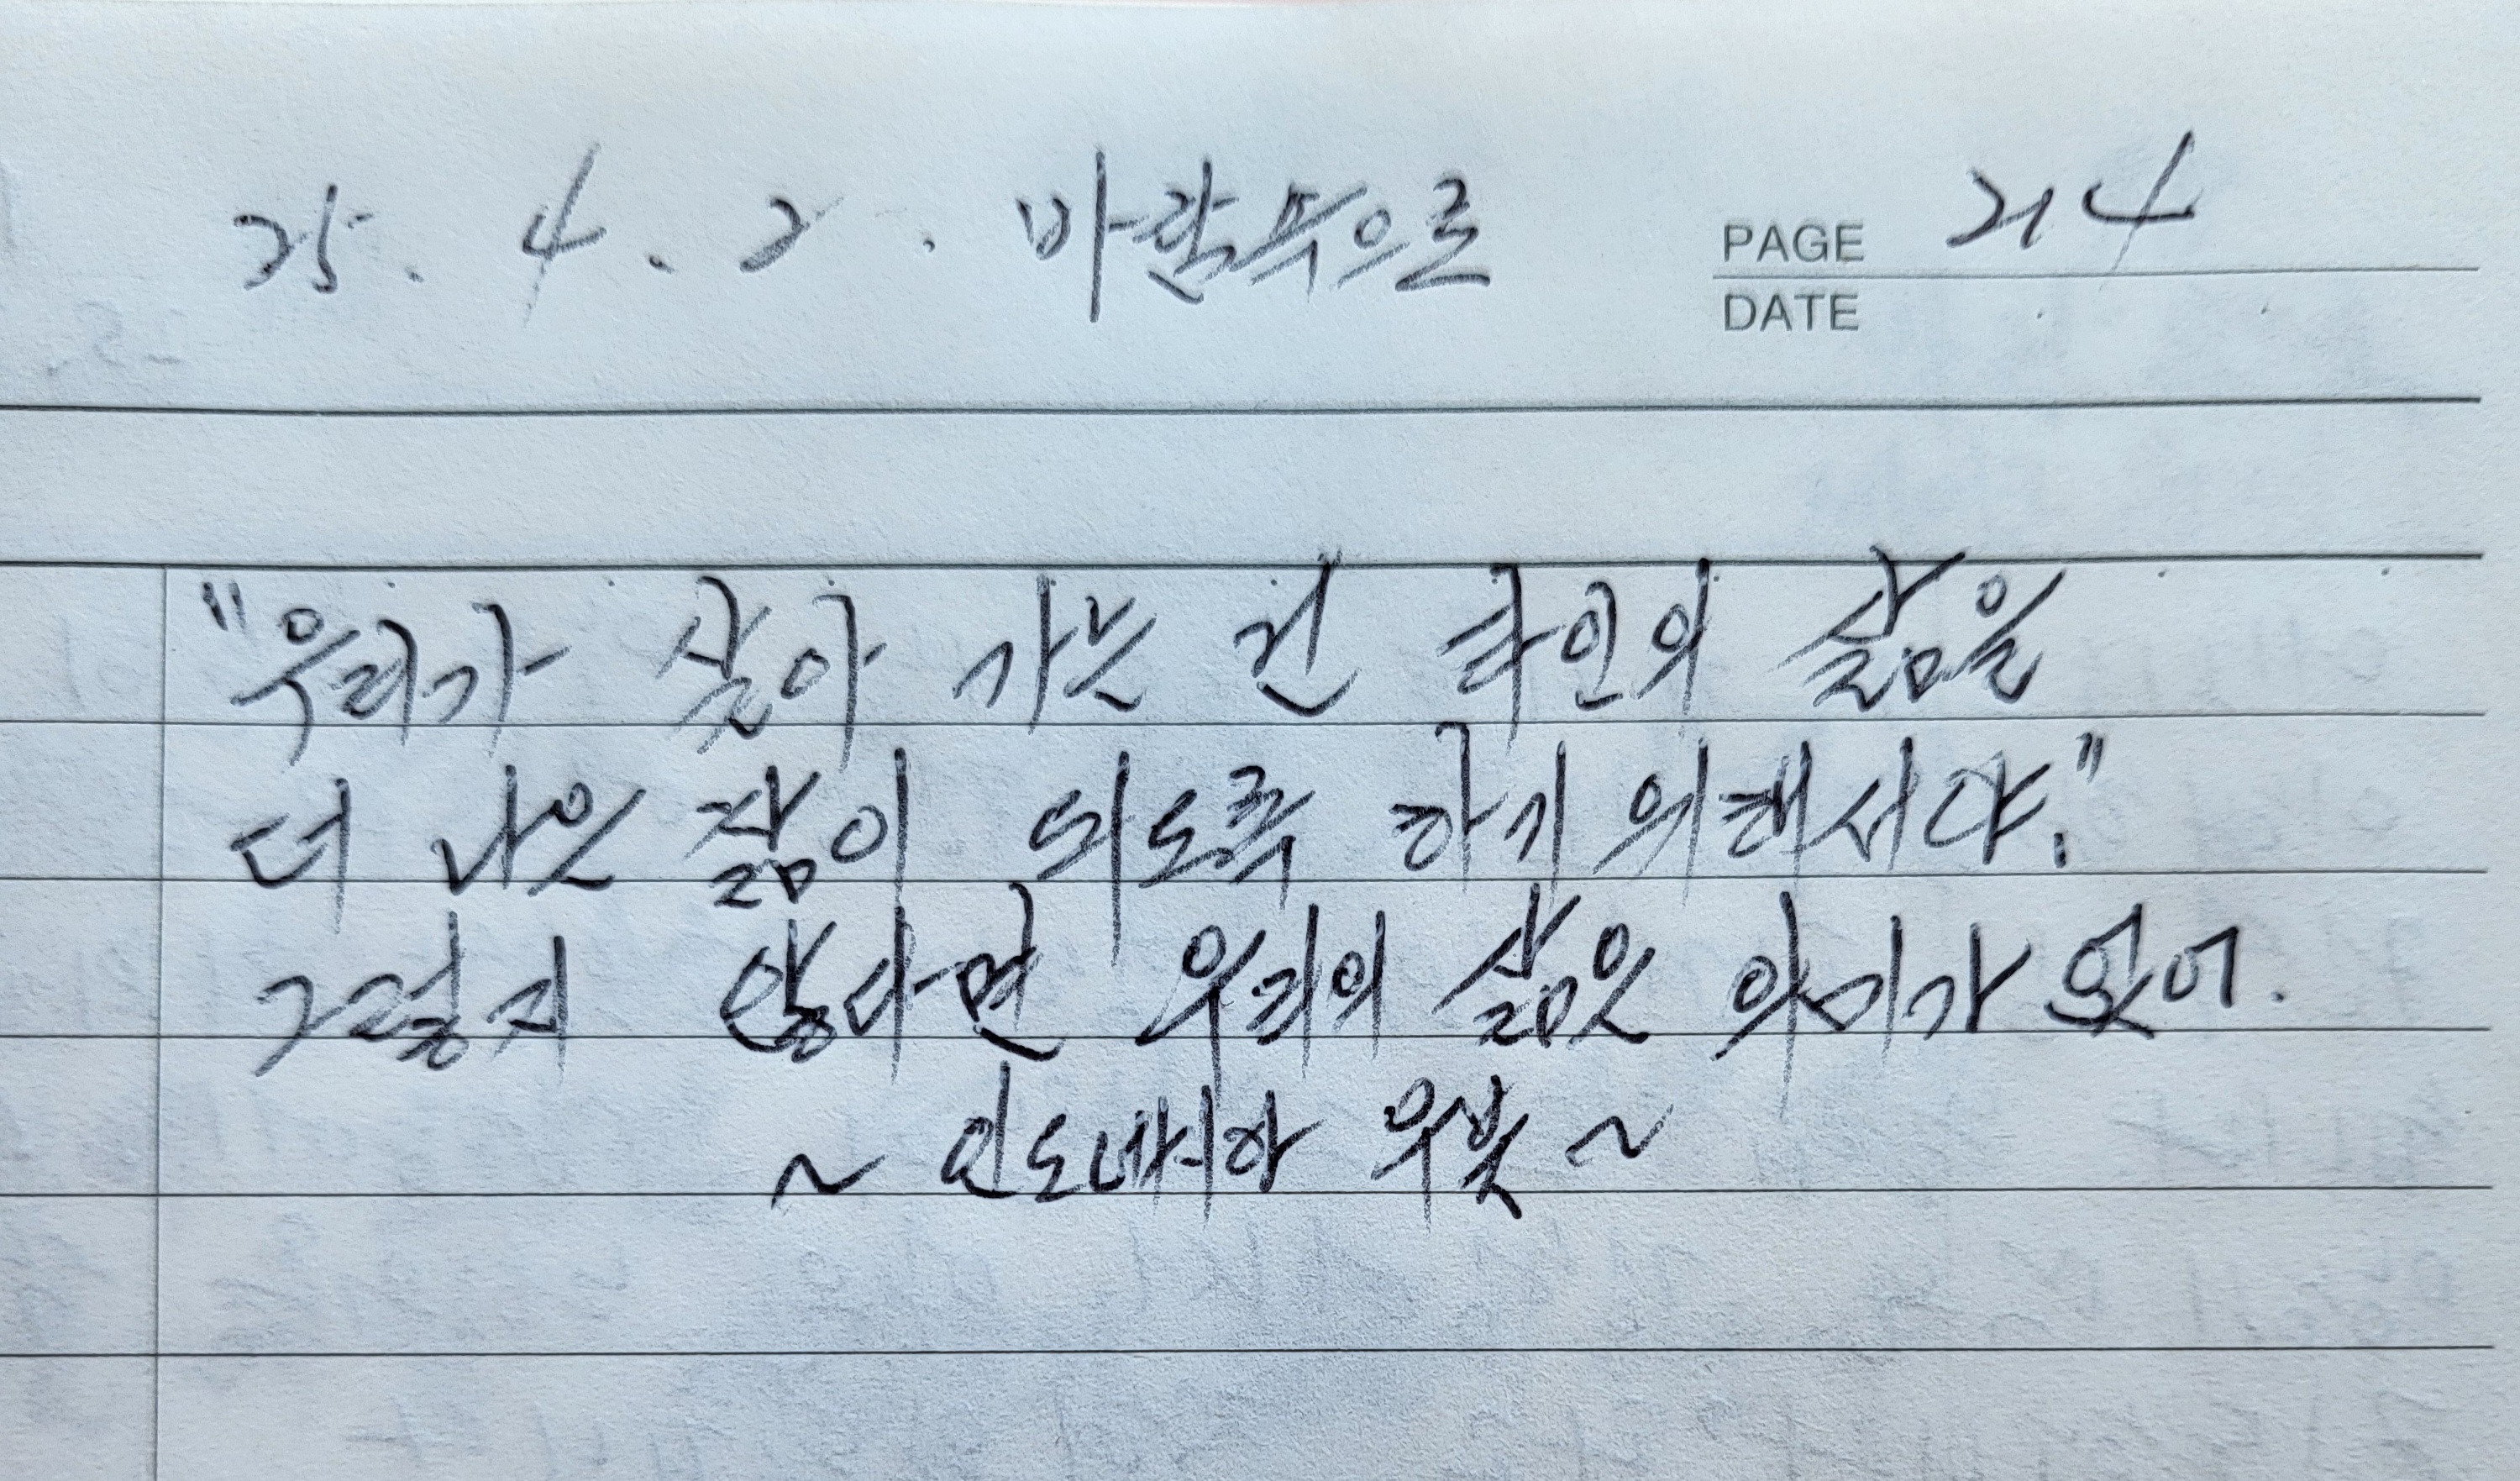 25. 4. 2. 바람쪽으로 PAGE 214
DATE
"우리가 살아 가는 건 타인의 삶을
더 나은 삶이 되도록 하기 위해서야."
그렇지 않다면 우리의 삶은 의미가 없어.
~ 인도네시아 우붓 ~